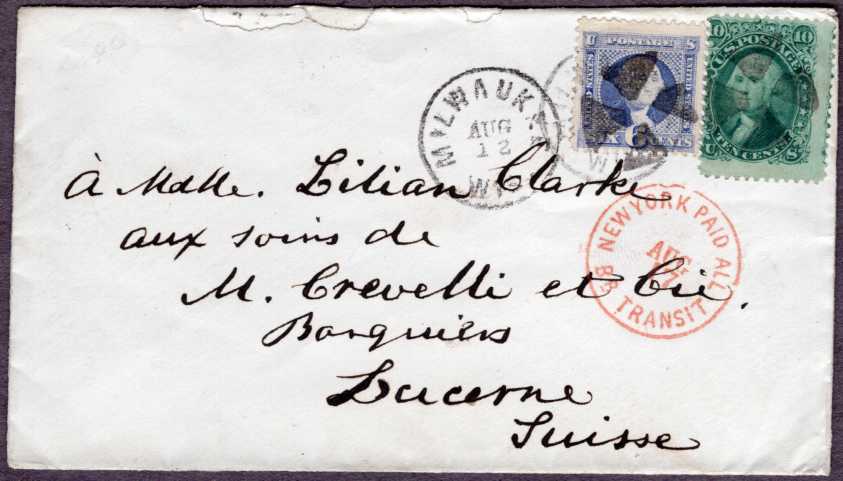 U S POSTAGE
UNITED STATES
SIX CENTS
6
10 10
U.S. POSTAGE
TEN CENTS
U S
MILWAUKEE
AUG
12
WIS
WIS
NEW YORK PAID ALL
AUG
BR. TRANSIT
à Mdlle. Lilian Clarke
aux soins de
M. Crevelli et Cie.
Banquiers
Lucerne
Suisse